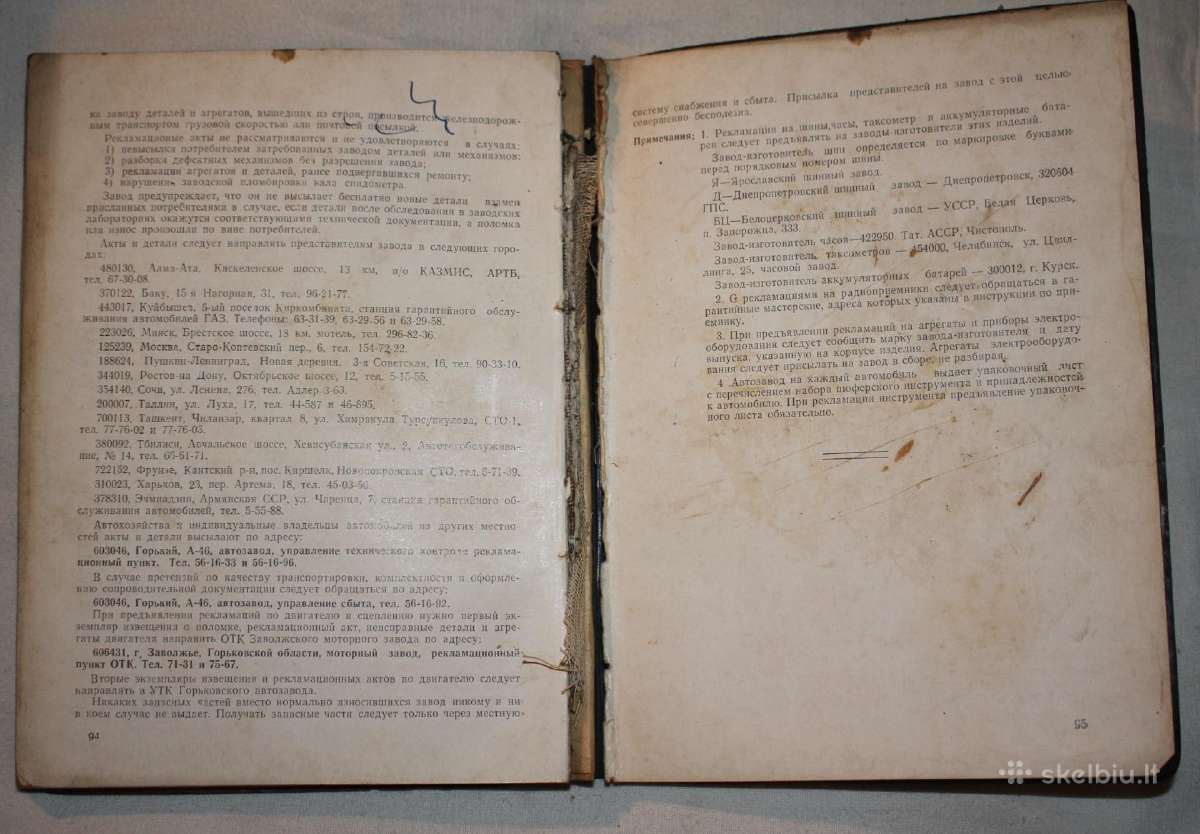 ка заводу деталей и агрегатов, вышедших из строя, производится железнодорож-
ным транспортом грузовой скоростью или почтовой посылкой.
Рекламационные акты не рассматриваются и не удовлетворяются в случаях:
1) невысылка потребителем затребованных заводом деталей или механизмов;
2) разборка дефектных механизмов без разрешения завода;
3) рекламации агрегатов и деталей, ранее подвергавшихся ремонту;
4) нарушения заводской пломбировки вала спидометра.
Завод предупреждает, что он не высылает бесплатно новые детали взамен
присланных потребителями в случае, если детали после обследования в заводских
лабораториях окажутся соответствующими технической документации, а поломка
или износ произошли по вине потребителей.
Акты и детали следует направлять представителям завода в следующих горо-
дах:
480130, Алма-Ата, Каскеленское шоссе, 13 км, п/о КАЗМИС, АРТБ,
тел. 67-30-08.
370122, Баку, 15-я Нагорная, 31, тел. 96-21-77.
443017, Куйбышев, 5-ый поселок Киркомбината, станция гарантийного обслу-
живания автомобилей ГАЗ. Телефоны: 63-31-39, 63-29-56 и 63-29-58.
223026, Минск, Брестское шоссе, 18 км, мотель, тел. 296-82-36.
125239, Москва, Старо-Коптевский пер., 6, тел. 154-72-22.
188624, Пушкин-Ленинград, Новая деревня, 3-я Советская, 16, тел. 90-33-10.
344019, Ростов-на Дону, Октябрьское шоссе, 12, тел. 5-15-55.
354140, Сочи, ул. Ленина, 276, тел. Адлер 3-63.
200007, Таллин, ул. Луха, 17, тел. 44-587 и 46-895.
700113, Ташкент, Чиланзар, квартал 8, ул. Хамракула СТО-1,
тел. 77-76-02 и 77-76-03.
380092, Тбилиси, Авчальское шоссе, Хевисубанская ул., 2, Автотехобслужива-
ние, № 14, тел. 66-61-71.
722152, Фрунзе, Кантский р-н, пос. Киршелк, Новопокровская СТО, тел. 8-71-39.
310023, Харьков, 23, пер. Артема, 18, тел. 45-03-50.
378310, Эчмиадзин, Армянская ССР, ул. Чаренца, 7, станция гарантийного об-
служивания автомобилей, тел. 5-55-88.
Автохозяйства и индивидуальные владельцы автомобилей из других местно-
стей акты и детали высылают по адресу:
603046, Горький, А-46, автозавод, управление технического контроля рекламa-
ционный пункт. Тел. 56-16-33 и 56-16-96.
В случае претензий по качеству транспортировки, комплектности и оформле-
нию сопроводительной документации следует обращаться по адресу:
603046, Горький, А-46, автозавод, управление сбыта, тел. 56-16-92.
При предъявлении рекламаций по двигателю и сцеплению нужно первый эк-
земпляр извещения о поломке, рекламационный акт, неисправные детали и агре-
гаты двигателя направить ОТК Заволжского моторного завода по адресу:
606431, г. Заволжье, Горьковской области, моторный завод, рекламационный
пункт ОТК. Тел. 71-31 и 75-67.
Вторые экземпляры извещения и рекламационных актов по двигателю следует
направлять в УТК Горьковского автозавода.
Никаких запасных частей вместо нормально износявшихся завод никому и ни
в коем случае не выдает. Получать запасные части следует только через местную
94
систему снабжения и сбыта. Присылка представителей на завод с этой целью
совершенно бесполезна.
Примечания: 1. Рекламации на шины, часы, таксометр и аккумуляторные бата-
реи следует предъявлять на заводы-изготовители этих изделий.
Завод-изготовитель шин определяется по маркировке буквами
перед порядковым номером шины.
Я—Ярославский шинный завод.
Д—Днепропетровский шинный завод — Днепропетровск, 320604
ГПС.
БЦ—Белоцерковский шинный завод — УССР, Белая Церковь,
п. Запорожна, 333.
Завод-изготовитель часов—422950 Тат. АССР, Чистополь.
Завод-изготовитель таксометров — 454000, Челябинск, ул. Цвил-
линга, 25, часовой завод.
Завод-изготовитель аккумуляторных батарей — 300012, г. Курск.
2. С рекламациями на радиоприемники следует обращаться в га-
рантийные мастерские, адреса которых указаны в инструкции по при-
емнику.
3. При предъявлении рекламаций на агрегаты и приборы электро-
оборудования следует сообщить марку завода-изготовителя и дату
выпуска, указанную на корпусе изделия. Агрегаты электрооборудо-
вания следует присылать на завод в сборе, не разбирая.
4. Автозавод на каждый автомобиль выдает упаковочный лист
с перечислением набора шоферского инструмента и принадлежностей
к автомобилю. При рекламации инструмента предъявление упаковоч-
ного листа обязательно.
95
skelbiu.lt